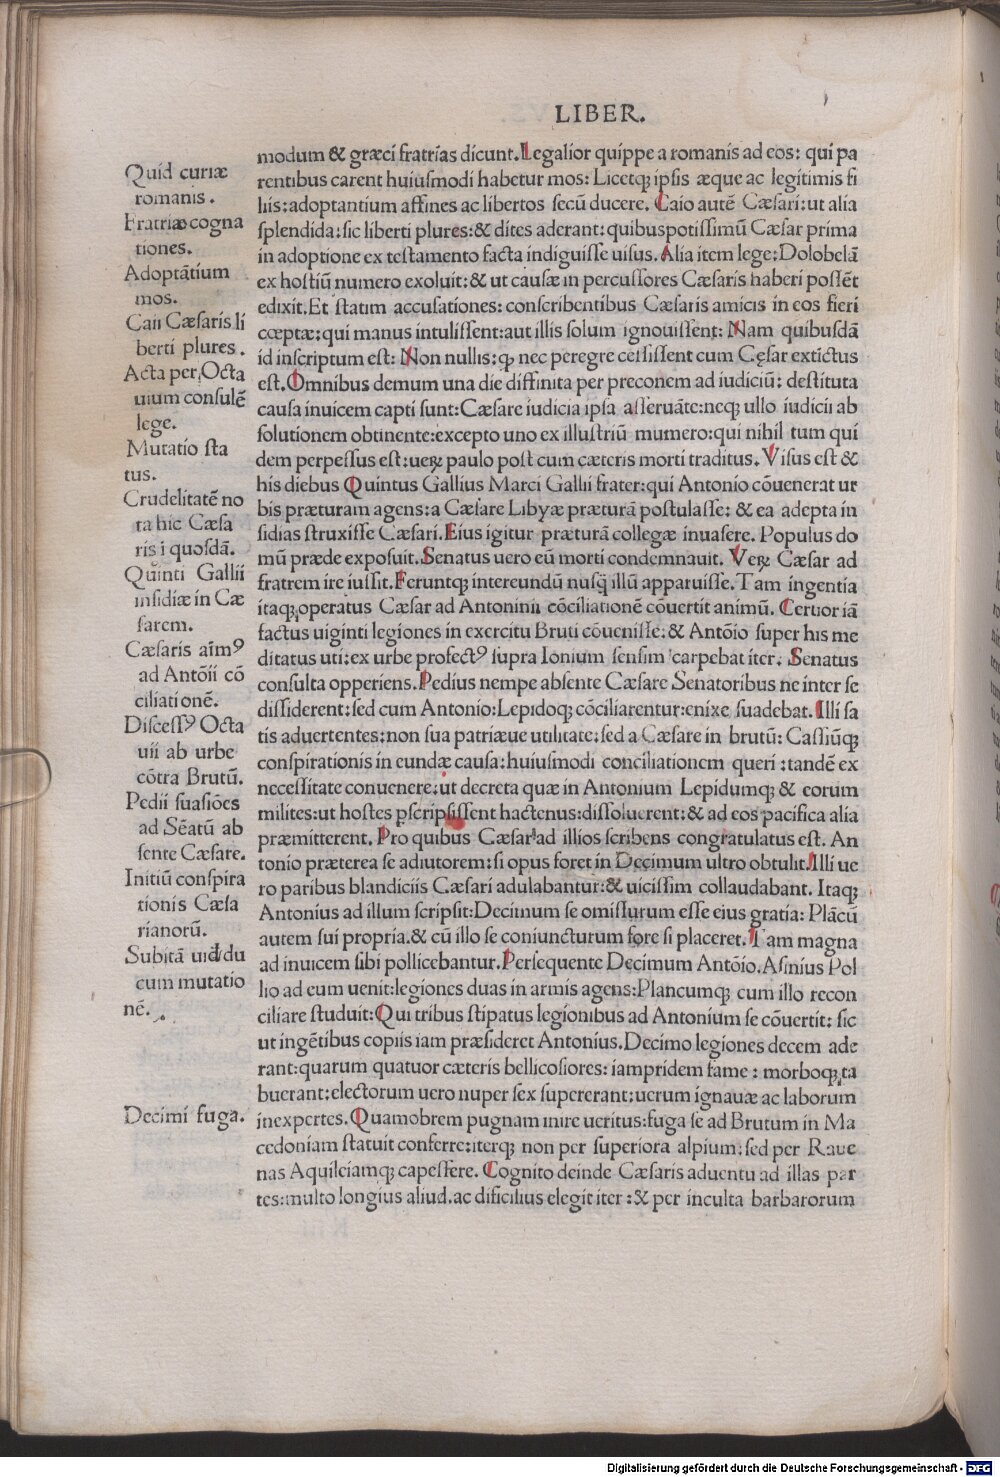 LIBER.
modum & græci fratrias dicunt. Legalior quippe a romanis ad eos: qui pa
rentibus carent huiusmodi habetur mos: Licetq; ipsis æque ac legitimis fi
liis: adoptantium affines ac libertos secū ducere. Caio autē Cæsari: ut alia
splendida: sic liberti plures: & dites aderant: quibuspotissimū Cæsar prima
in adoptione ex testamento facta indiguisse uisus. Alia item lege: Dolobelā
ex hostiū numero exoluit: & ut causæ in percussores Cæsaris haberi possēt
edixit. Et statim accusationes: conscribentibus Cæsaris amicis in eos fieri
cœptæ: qui manus intulissent: aut illis solum ignouissent: Nam quibusdā
id inscriptum est: Non nullis: q nec peregre cessissent cum Cęsar extictus
est. Omnibus demum una die diffinita per preconem ad iudiciū: destituta
causa inuicem capti sunt: Cæsare iudicia ipsa asseruāte: neq; ullo iudicii ab
solutionem obtinente: excepto uno ex illustriū mumero: qui nihil tum qui
dem perpessus est: ueꝝ paulo post cum cæteris morti traditus. Visus est &
his diebus Quintus Gallius Marci Gallii frater: qui Antonio cōuenerat ur
bis præturam agens: a Cæsare Libyæ præturā postulasse: & ea adepta in
sidias struxisse Cæsari. Eius igitur præturā collegæ inuasere. Populus do
mū præde exposuit. Senatus uero eū morti condemnauit. Veꝝ Cæsar ad
fratrem ire iussit. Feruntq; intereundū nusq̄ illū apparuisse. Tam ingentia
itaq; operatus Cæsar ad Antoninii cōciliationē cōuertit animū. Certior iā
factus uiginti legiones in exercitu Bruti cōuenisse: & Antōio super his me
ditatus uti: ex urbe profectꝰ supra Ionium sensim carpebat iter. Senatus
consulta opperiens. Pedius nempe absente Cæsare Senatoribus ne inter se
dissiderent: sed cum Antonio: Lepidoq; cōciliarentur: enixe suadebat. Illi sa
tis aduertentes: non sua patriæue utilitate: sed a Cæsare in brutū: Cassiūq;
conspirationis in eundæ causa: huiusmodi conciliationem queri: tandē ex
necessitate conuenere: ut decreta quæ in Antonium Lepidumq; & eorum
milites: ut hostes pscripsissent hactenus: dissoluerent: & ad eos pacifica alia
præmitterent. Pro quibus Cæsar ad illios scribens congratulatus est. An
tonio præterea se adiutorem: si opus foret in Decimum ultro obtulit. Illi ue
ro paribus blandiciis Cæsari adulabantur: & uicissim collaudabant. Itaq;
Antonius ad illum scripsit: Decimum se omissurum esse eius gratia: Plācū
autem sui propria. & cū illo se coniuncturum fore si placeret. Tam magna
ad inuicem sibi pollicebantur. Persequente Decimum Antōio. Asinius Pol
lio ad eum uenit: legiones duas in armis agens: Plancumq; cum illo recon
ciliare studuit: Qui tribus stipatus legionibus ad Antonium se cōuertit: sic
ut ingētibus copiis iam præsideret Antonius. Decimo legiones decem ade
rant: quarum quatuor cæteris bellicosiores: iampridem fame: morboq; ta
buerant: electorum uero nuper sex supererant: uerum ignauæ ac laborum
inexpertes. Quamobrem pugnam inire ueritus: fuga se ad Brutum in Ma
cedoniam statuit conferre: iterq; non per superiora alpium: sed per Raue
nas Aquileiamq; capessere. Cognito deinde Cæsaris aduentu ad illas par
tes: multo longius aliud. ac dificilius elegit iter: & per inculta barbarorum
Quid curiæ
romanis.
Fratriæ cogna
tiones.
Adoptātium
mos.
Caii Cæsaris li
berti plures.
Acta per Octa
uium consulē
lege.
Mutatio sta
tus.
Crudelitatē no
ta hic Cæsa
ris i quosdā.
Quinti Gallii
insidiæ in Cæ
sarem.
Cæsaris aīmꝰ
ad Antōii cō
ciliationē.
Discessꝰ Octa
uii ab urbe
cōtra Brutū.
Pedii suasiōes
ad Sēatū ab
sente Cæsare.
Initiū conspira
tionis Cæsa
rianorū.
Subitā uid du
cum mutatio
nē.
Decimi fuga.
Digitalisierung gefördert durch die Deutsche Forschungsgemeinschaft - DFG